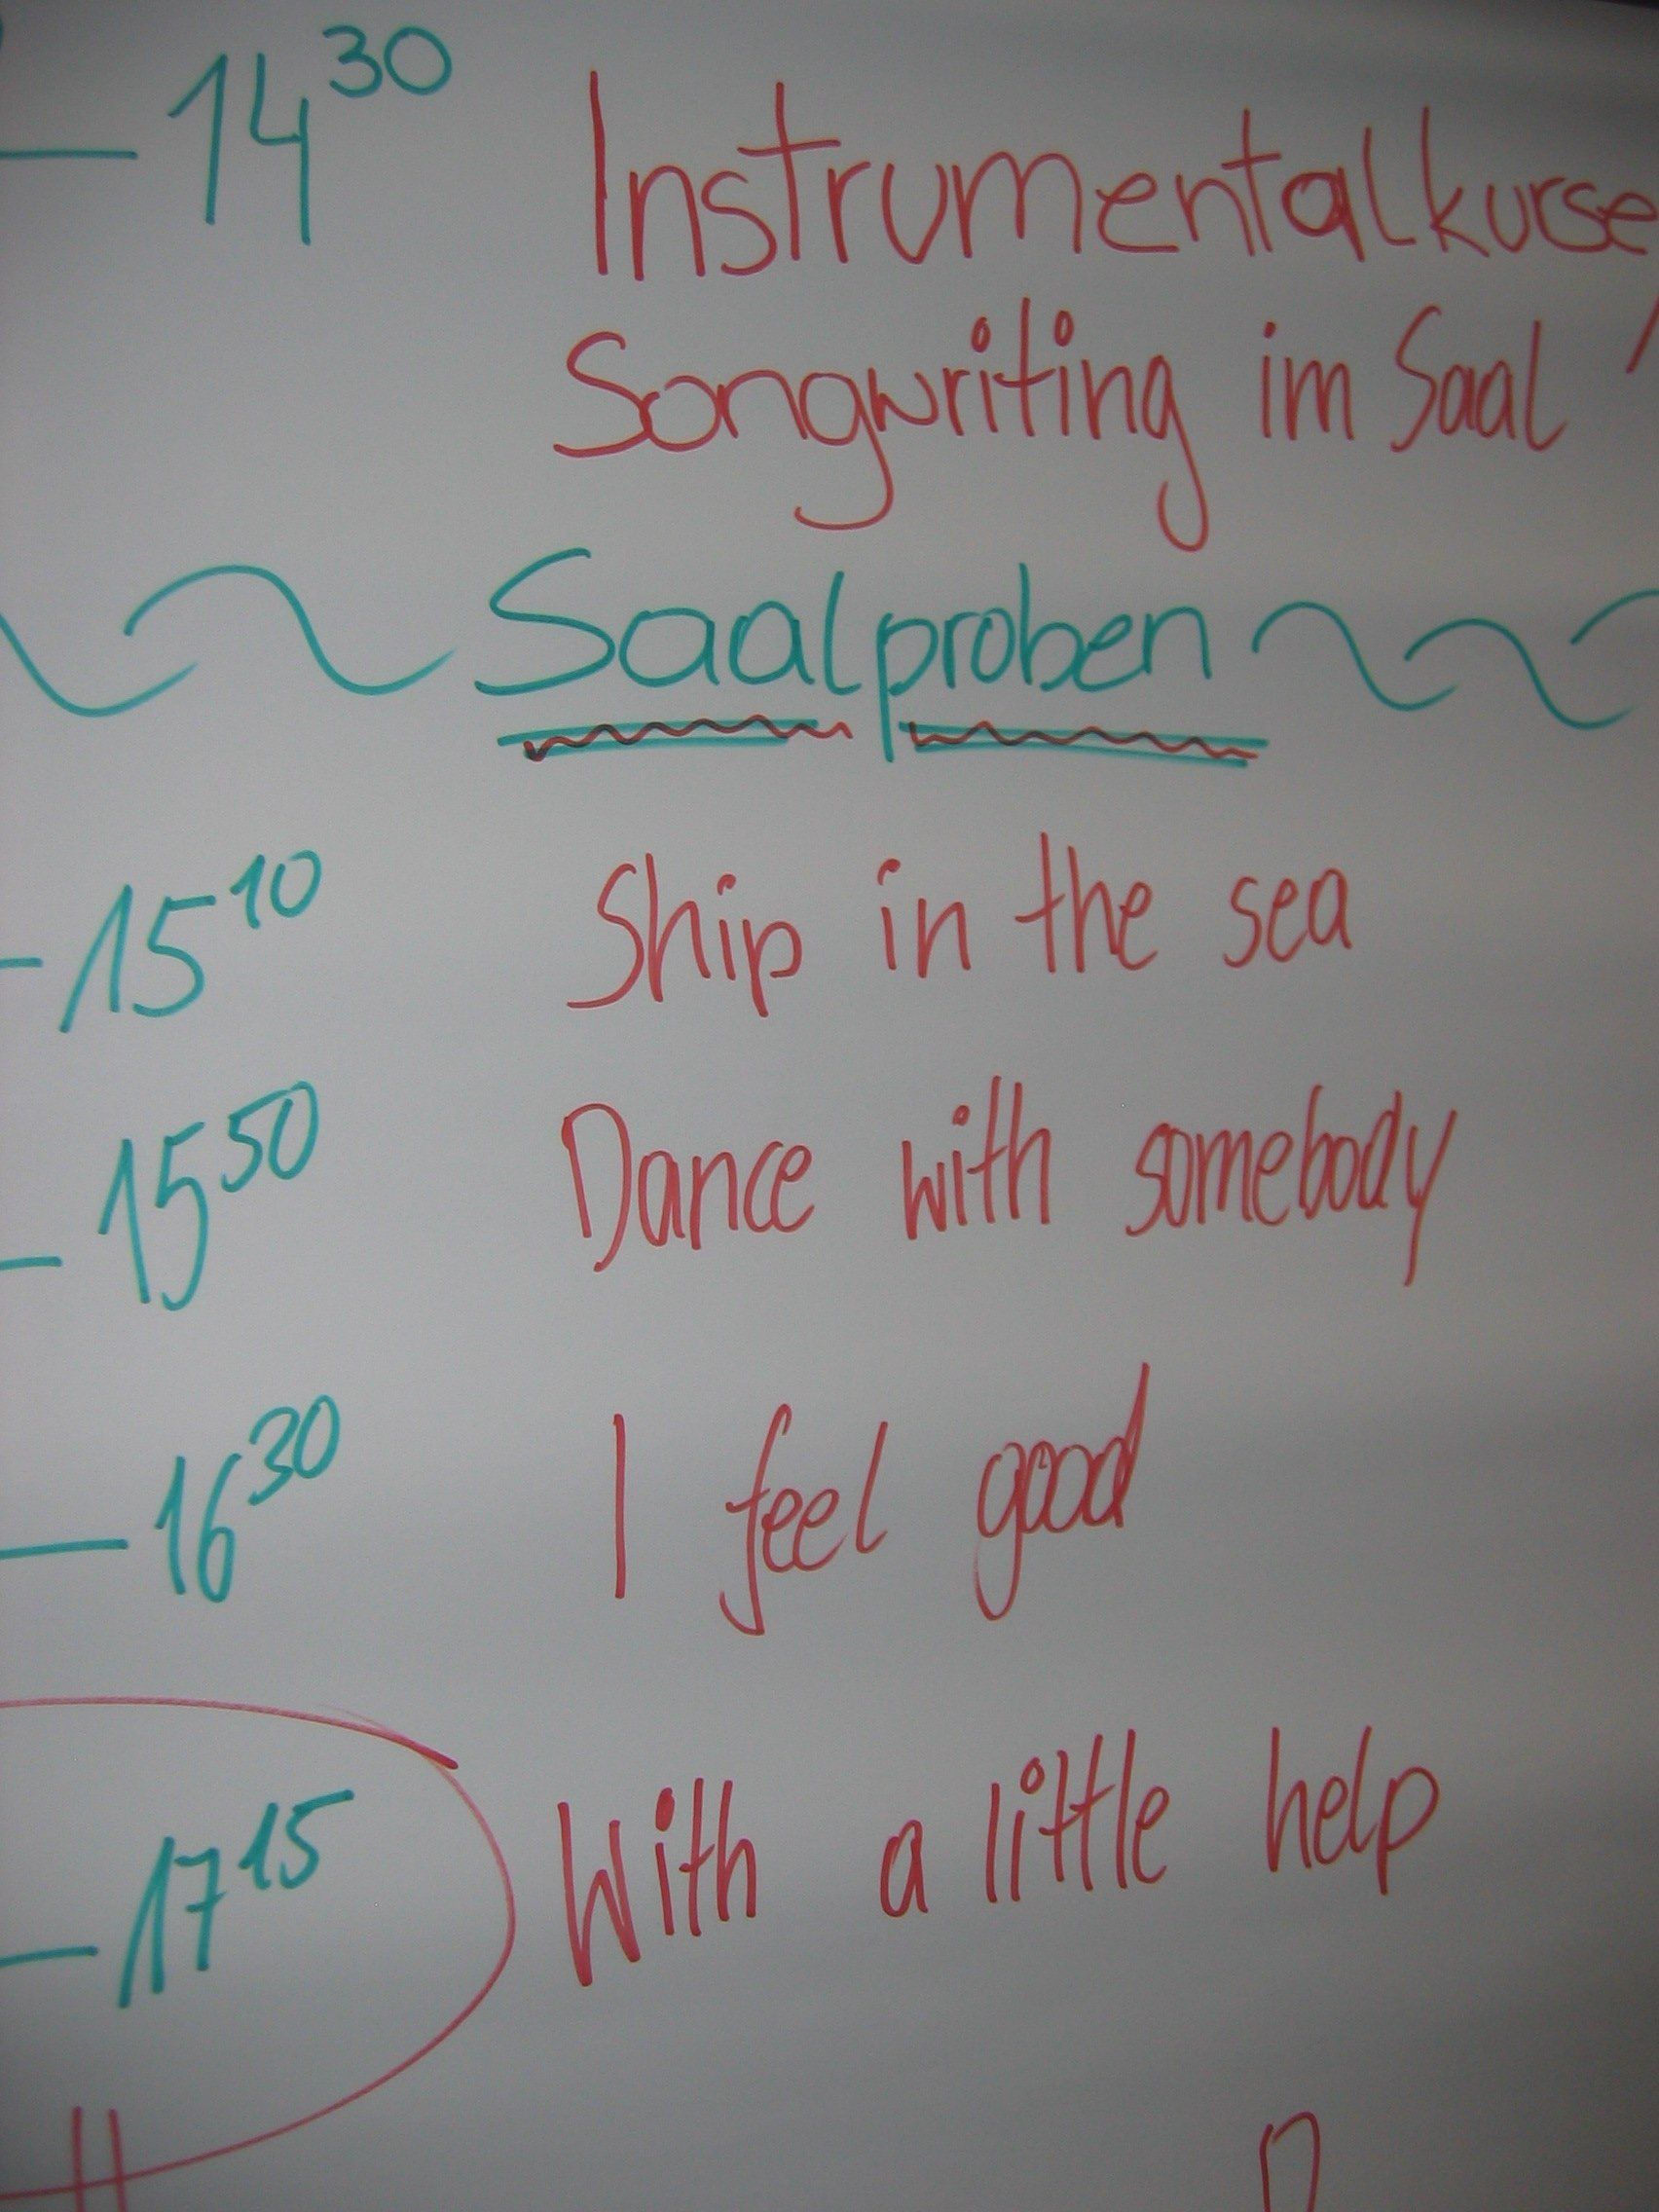 – 14³⁰ Instrumentalkurse
Songwriting im Saal
Saalproben
– 15¹⁰ Ship in the sea
– 15⁵⁰ Dance with somebody
– 16³⁰ I feel good
– 17¹⁵ With a little help